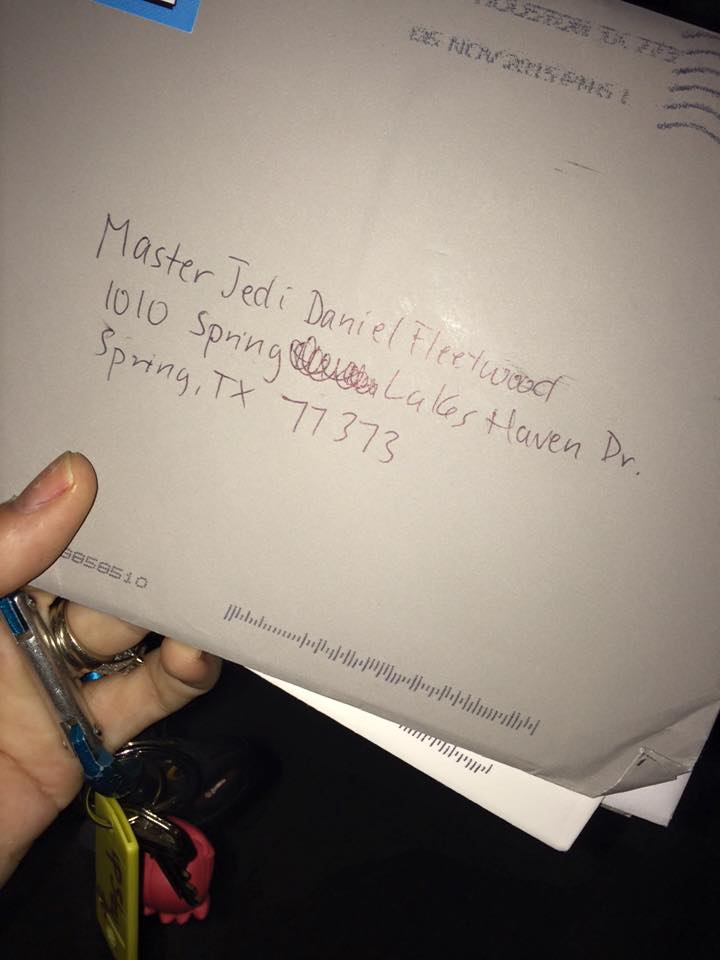 06 NOV 2015 PM 6 L
Master Jedi Daniel Fleetwood
1010 Spring Lakes Haven Dr.
Spring, TX 77373
9858510